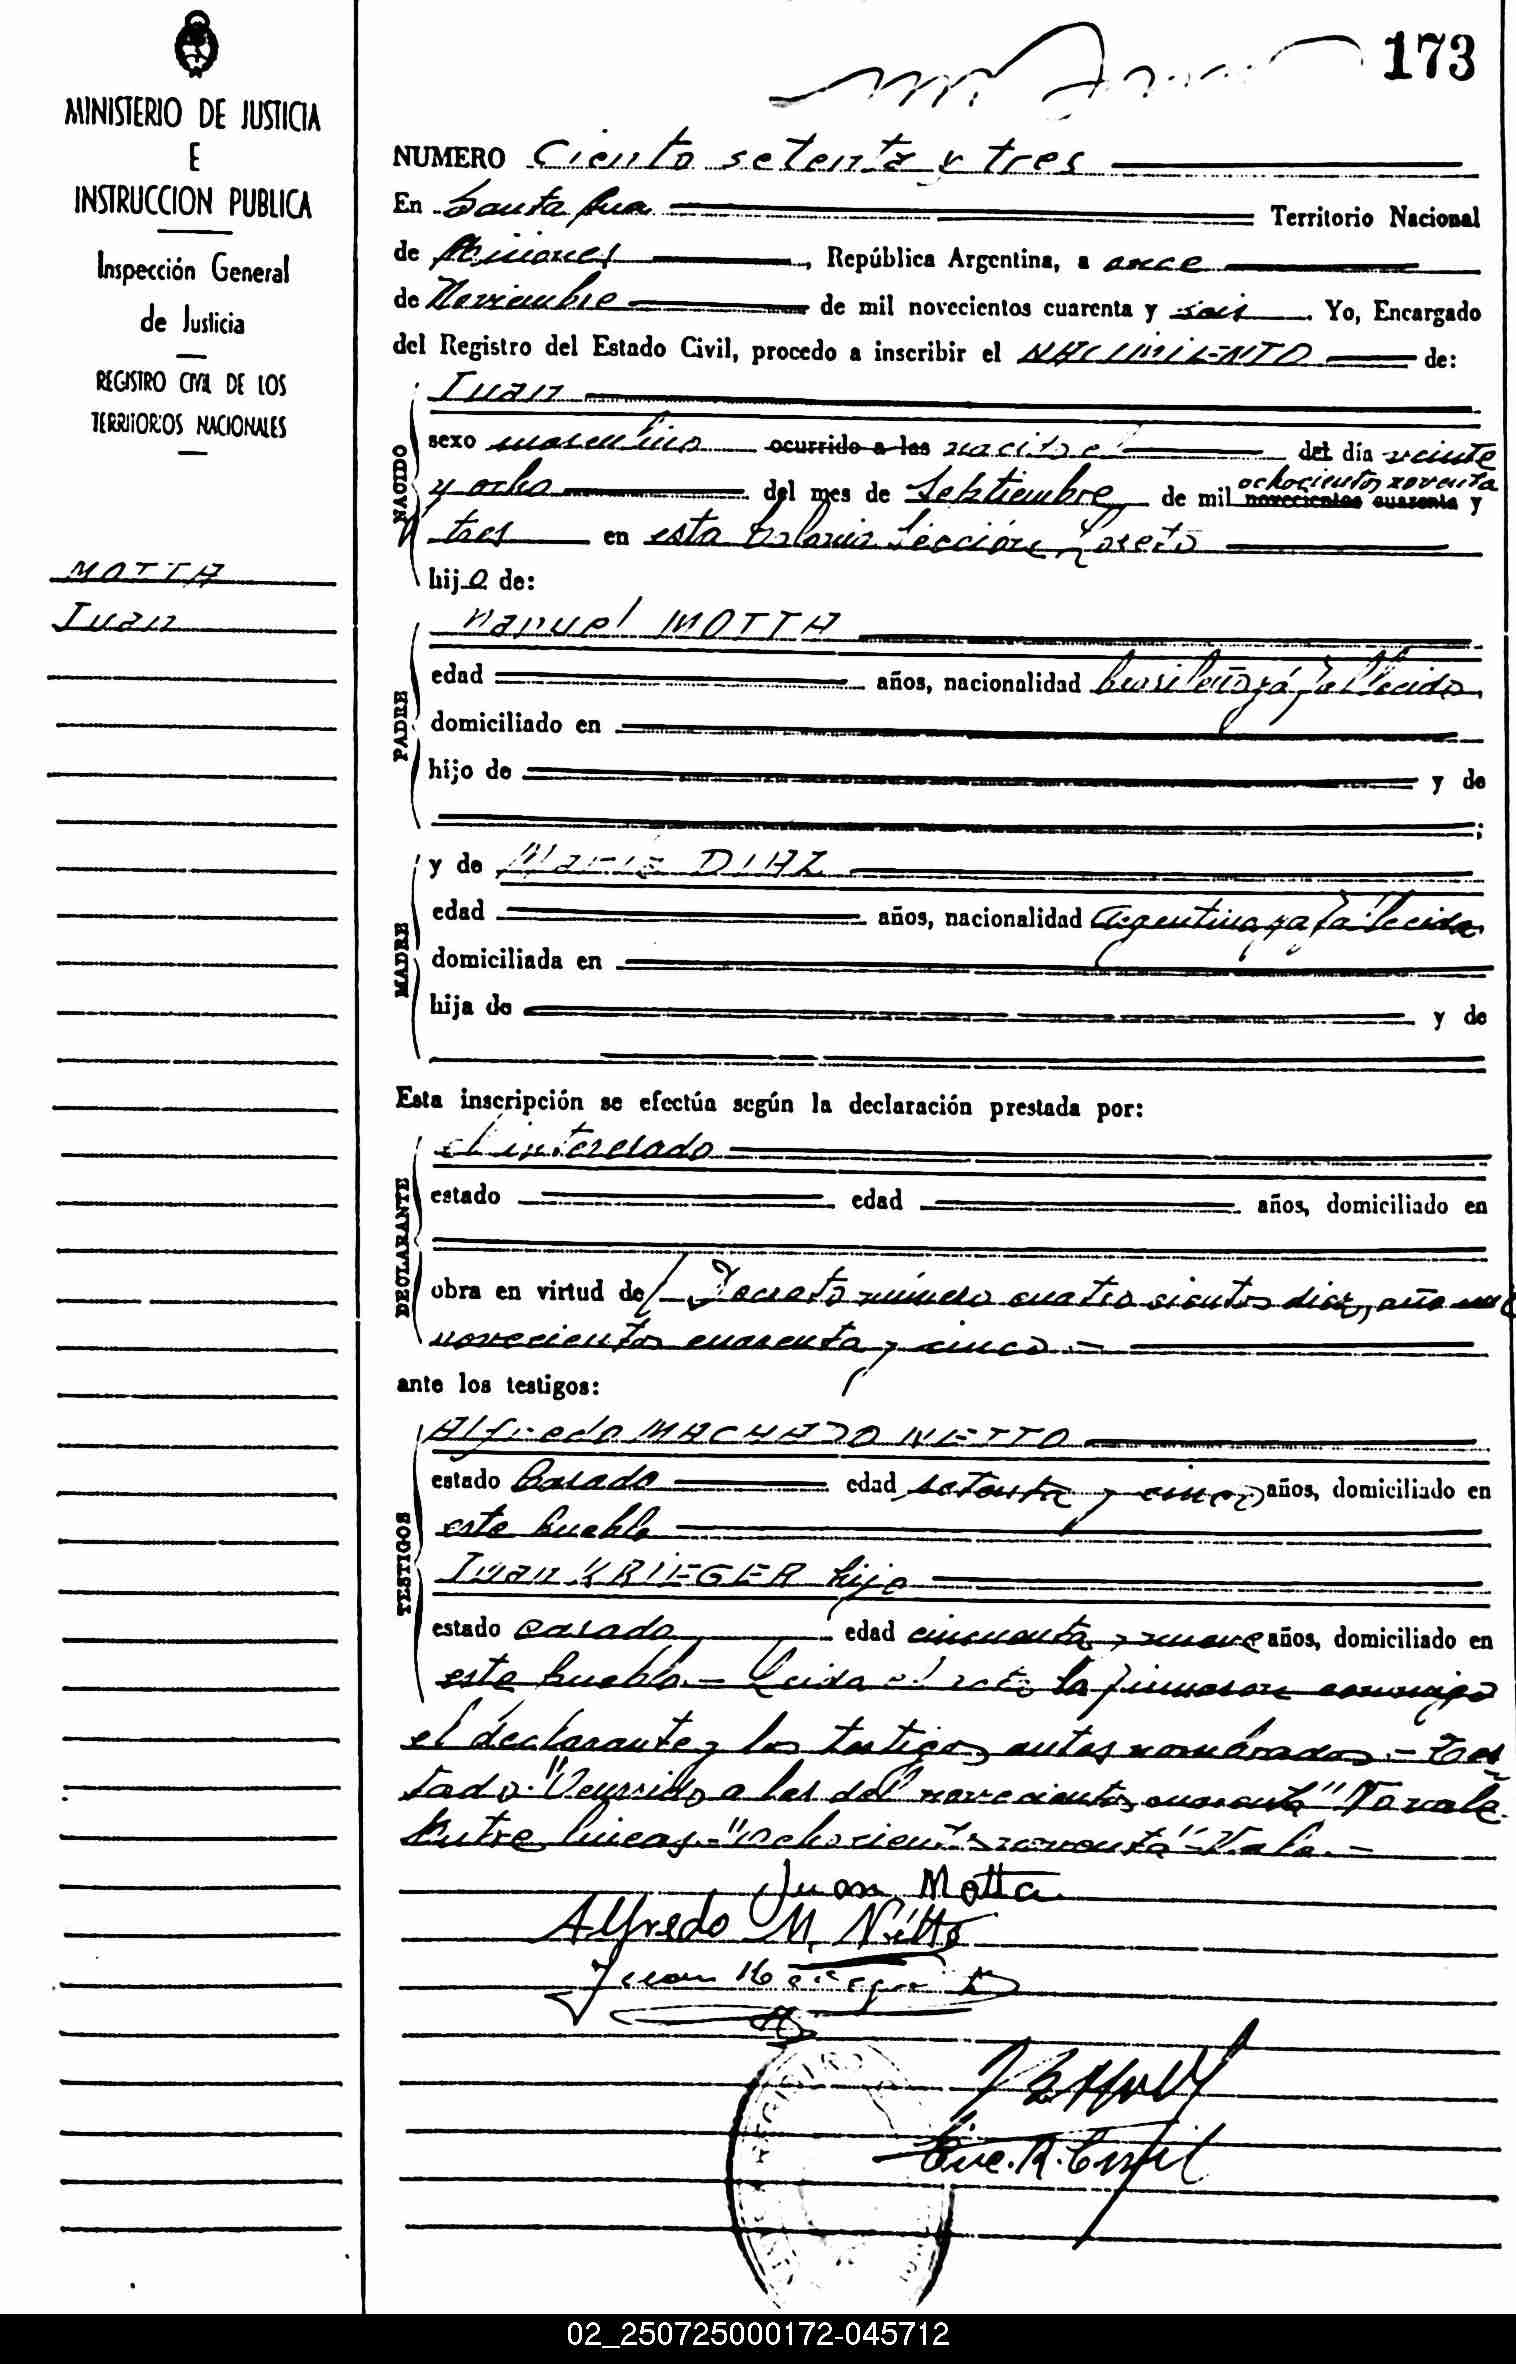 173
MINISTERIO DE JUSTICIA
E
INSTRUCCION PUBLICA
Inspección General
de Justicia
REGISTRO CIVIL DE LOS
TERRITORIOS NACIONALES
MOTTA
Juan
NUMERO Ciento setenta y tres
En Santa Ana Territorio Nacional
de Misiones, República Argentina, a once
de Noviembre de mil novecientos cuarenta y seis. Yo, Encargado
del Registro del Estado Civil, procedo a inscribir el NACIMIENTO de:
NACIDO
Juan
sexo masculino ocurrido a las nacido el del día veinte
y ocho del mes de Septiembre de mil ochocientos noventa novecientos cuarenta y
tres en esta Colonia Sección Loreto
hijo de:
PADRE
Manuel MOTTA
edad años, nacionalidad brasileño ya fallecido,
domiciliado en
hijo de y de
;
MADRE
y de María DIAZ
edad años, nacionalidad Argentina ya fallecida
domiciliada en
hija de y de
Esta inscripción se efectúa según la declaración prestada por:
DECLARANTE
el interesado
estado edad años, domiciliado en
obra en virtud de Decreto número cuatro cientos diez, año mil
novecientos cuarenta y cinco.-
ante los testigos:
TESTIGOS
Alfredo MACHADO NETTO
estado Casado edad setenta y cinco años, domiciliado en
este pueblo
Juan KRIEGER hijo
estado casado edad cincuenta y nueve años, domiciliado en
este pueblo.- Leida el acta la firmaron conmigo
el declarante y los testigos antes nombrados.- Tes
tado "Ocurrido a las del novecientos cuarenta" No vale.
Entre lineas.- "ochocientos noventa" Vale.-
Juan Motta
Alfredo M. Nétto
Juan Krieger h
Enc. R. Civil
REGISTRO
02_250725000172-045712